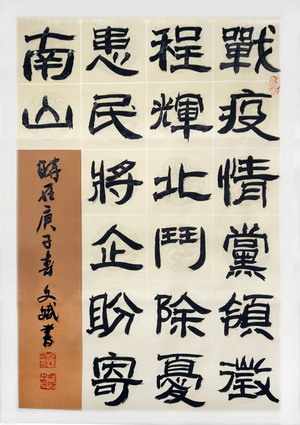 戰疫情黨領徵
程輝北鬥除憂
患民將企盼寄
南山
庚子春文斌書